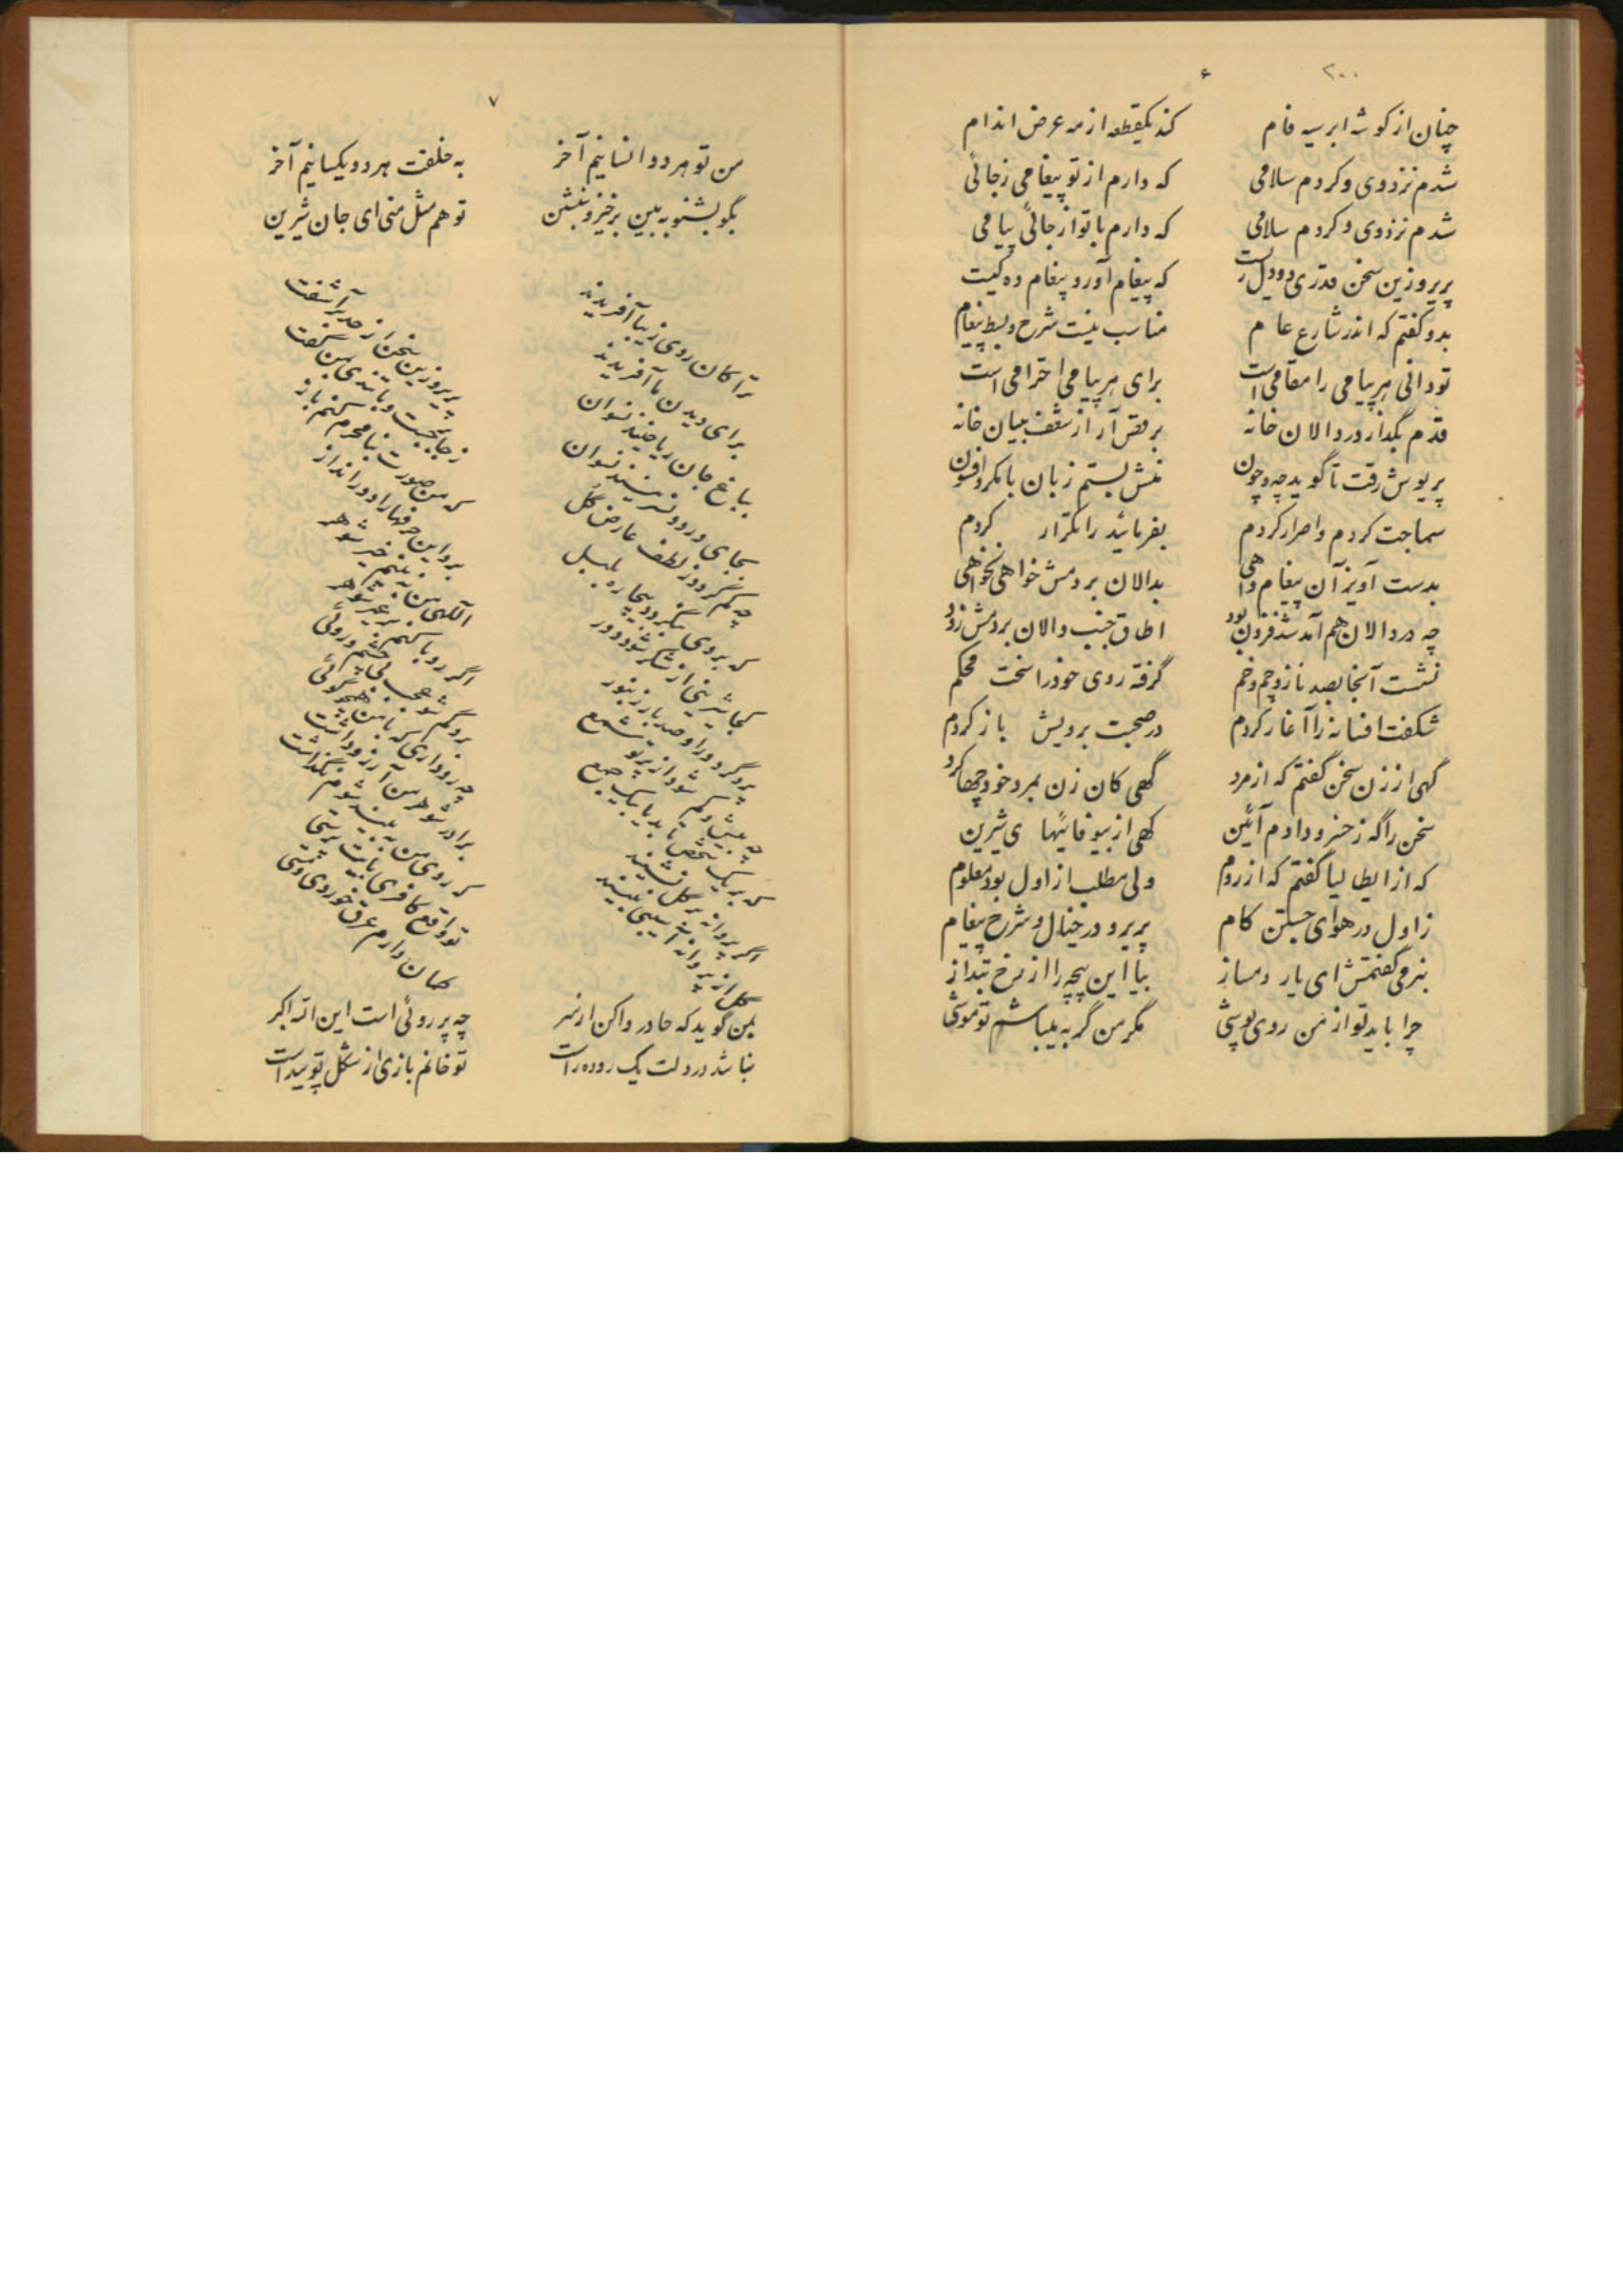 ۲۰۰
۶
چنان از گوشه ابر سیه فام کند یکقطعه از مه عرض اندام
شدم نزدوی و کردم سلامی که دارم از تو پیغامی زجائی
شدم نزدوی و کردم سلامی که دارم با تو از جائی پیامی
پریرو زین سخن قدری دو دل است که پیغام آور و پیغام ده کیست
بدو گفتم که اندر شارع عام مناسب نیست شرح و بسط پیغام
تو دانی هر پیامی را مقامی است برای هر پیامی احترامی است
قدم بگذار در دالان خانه برقص آر از شعف بنیان خانه
پریوش رفت تا گوید چه و چون منش بستم زبان با مکر و افسون
سماجت کردم و اصرار کردم بفرمائید را تکرار کردم
بدست آویز آن پیغام واهی بدالان بردمش خواهی نخواهی
چه در دالان هم آمد شد فزون بود اطاق جنب دالان بردمش زود
نشست آنجا بصد ناز و چم و خم گرفته روی خود را سخت محکم
شگفت افسانه را آغاز کردم در صحبت برویش باز کردم
گهی از زن سخن گفتم که از مرد گهی کان زن بمرد خود چها کرد
سخن را گه ز خسرو دادم آئین گهی از بیوفائیهای شیرین
که از ایطالیا گفتم که از روم ولی مطلب از اول بود معلوم
ز اول در هوای جستن کام پریرو در خیال و شرح پیغام
بنرمی گفتمش ای یار دمساز بیا این پیچه را از رخ بنداز
چرا باید تو از من روی پوشی مگر من گربه میباشم تو موشی
۷
من تو هر دو انسانیم آخر به خلقت هر دو یکسانیم آخر
بگو بشنو به بین برخیز و بنشین تو هم مثل منی ای جان شیرین
ترا کان روی زیبا آفریدند برای دیدن ما آفریدند
بباغ جان ریاحینند نسوان بجای ورد و نسرینند نسوان
چه کم گردد ز لطف عارض گل که بروی بنگرد بیچاره بلبل
کجا شیرینی از شکر شود دور پرد گر دور او صد بار زنبور
چه بیش و کم شود از پرتو شمع که بر یک شخص تابد یا بیک جمع
اگر پروانه بر گل نشیند گل از پروانه آسیبی نبیند
پریرو زین سخن از حد برآشفت ز جا برجست و با تندی بمن گفت
که من صورت بنامحرم کنم باز برو این حرفها را دور انداز
الهی من نه بینم خیر شوهر اگر رو با کنم بر غیر شوهر
برو گم شو عجب بی چشم و روئی چه رو داری که با من همچو گوئی
برادر شوهر من آرزو داشت که روی من به بیند شوم نگذاشت
تو واقع کافری بابیت پرستی گمان دارم عرق خوردی و مستی
بمن گوید که چادر واکن از سر چه پرروئی است این الله اکبر
نباشد در دلت یک روده راست تو خانم بازی از شکل تو پیداست